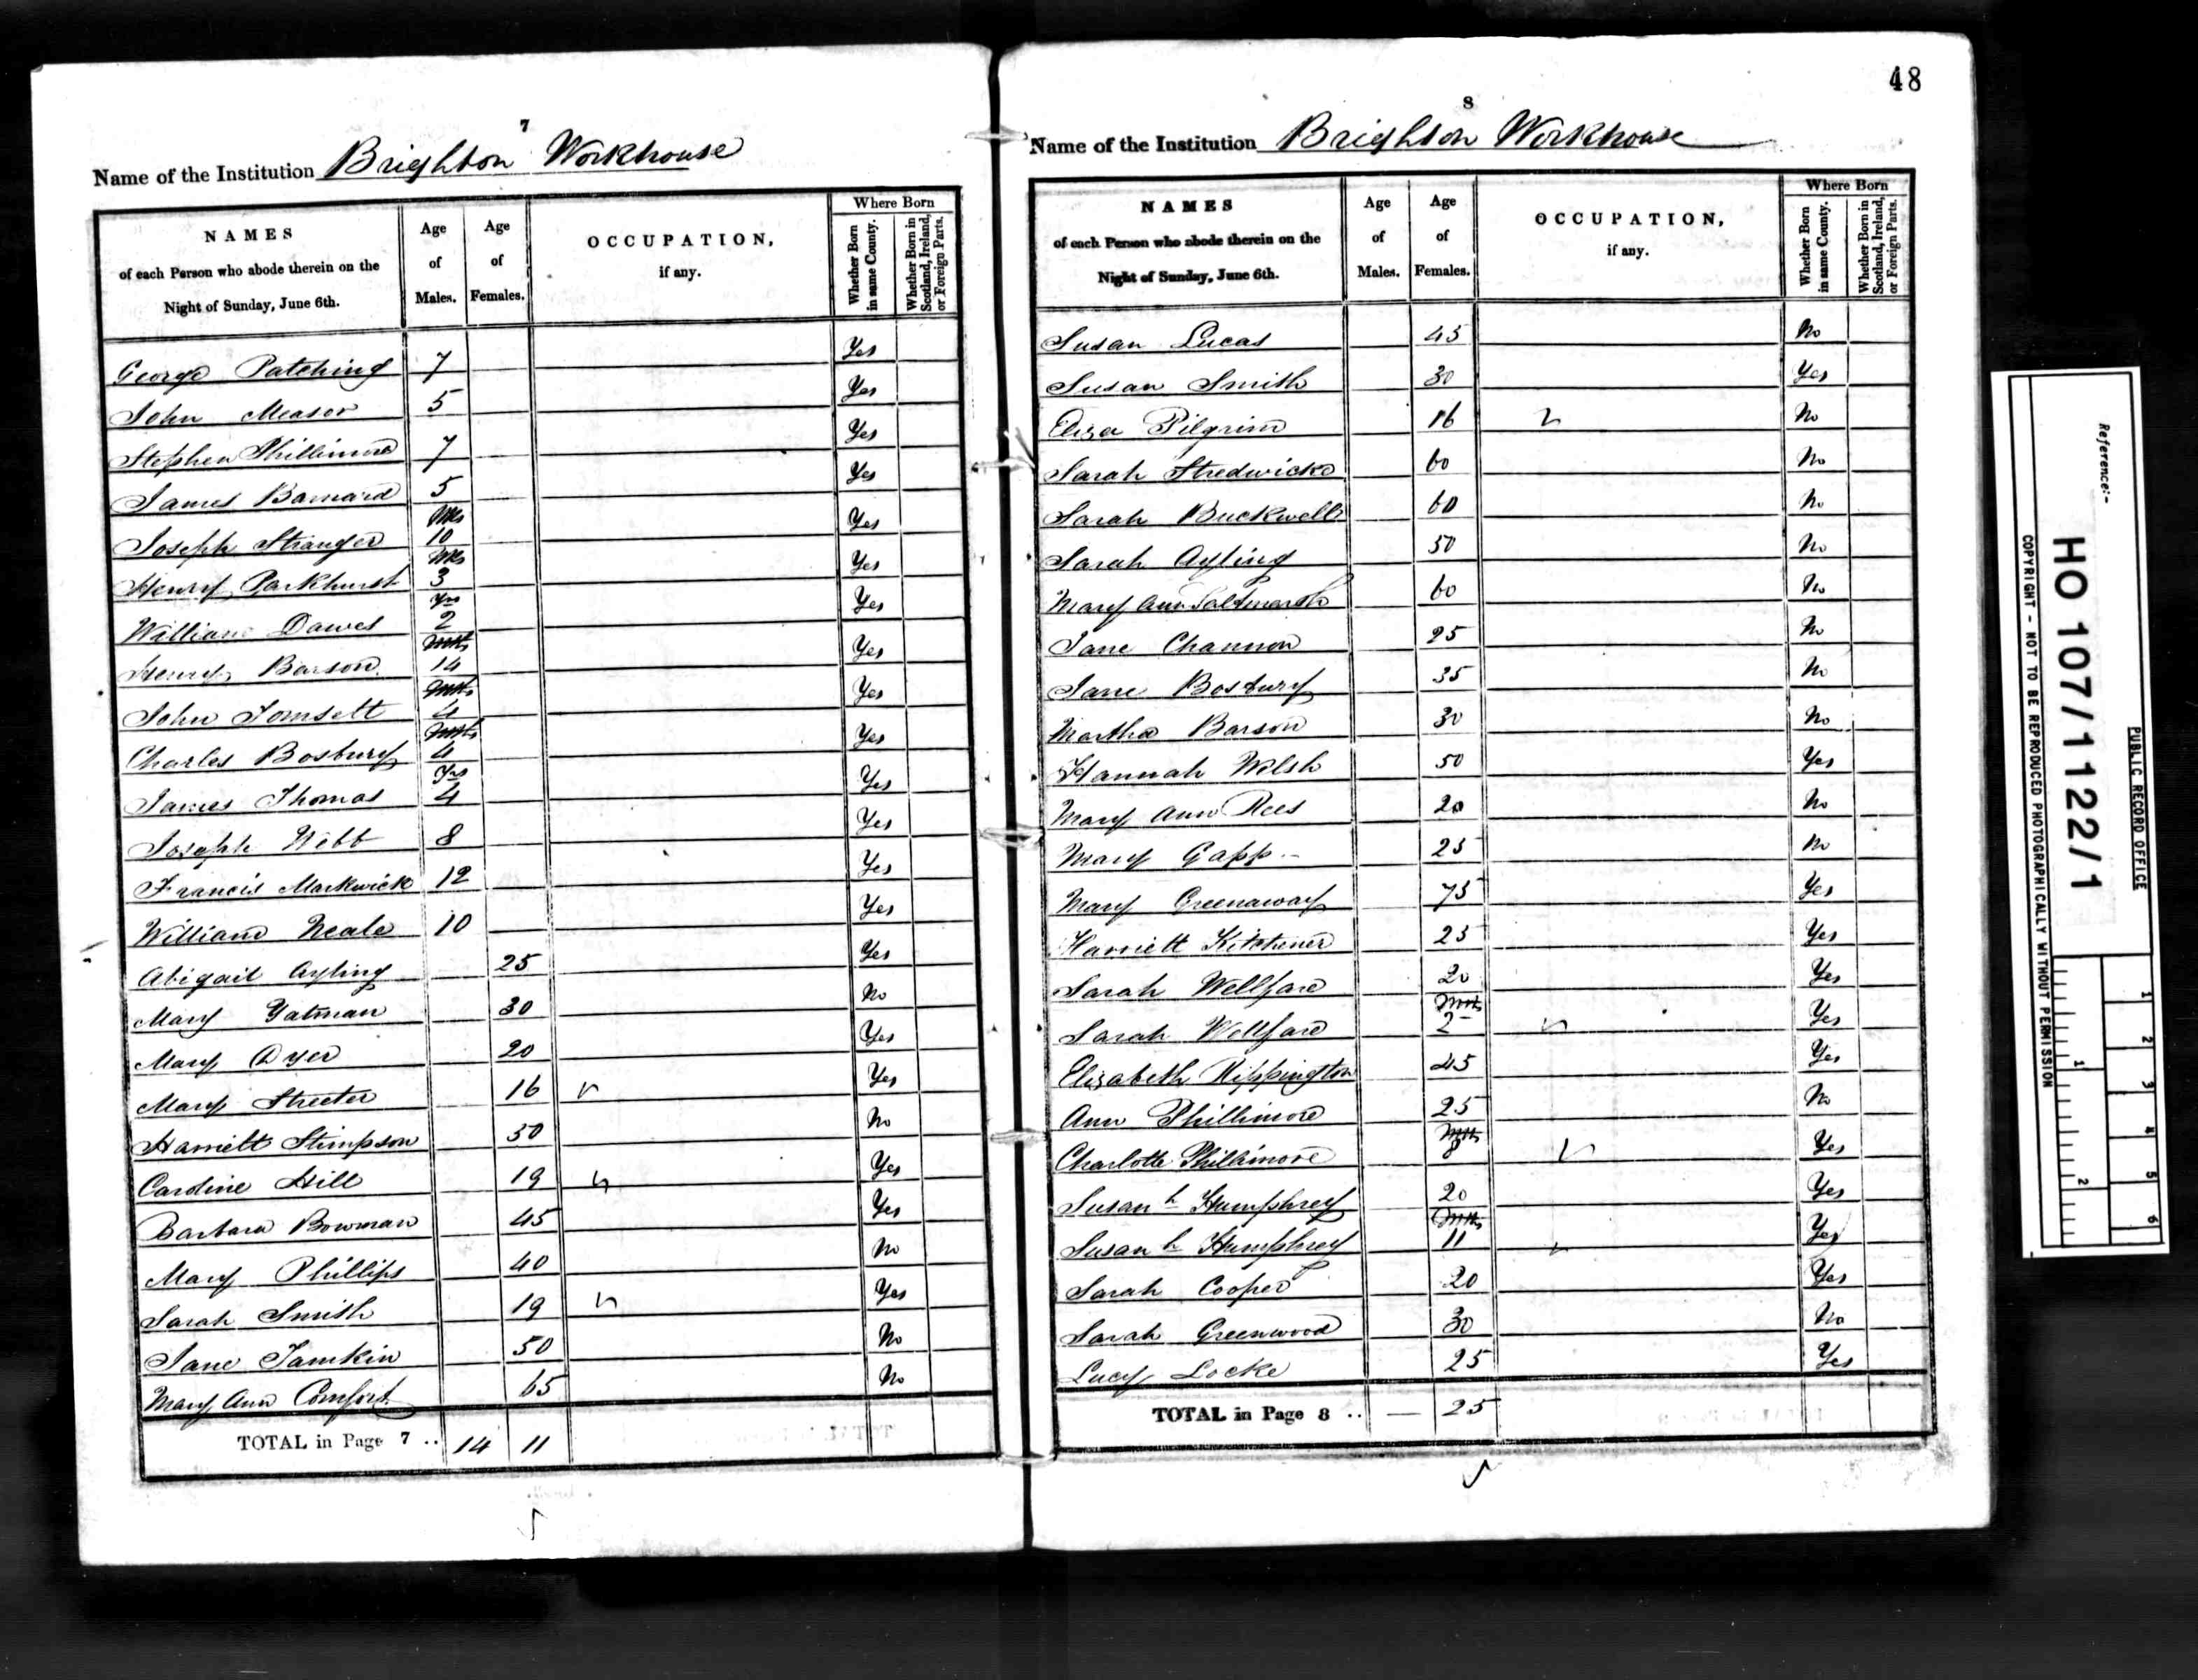 48
7
Name of the Institution Brighton Workhouse
NAMES of each Person who abode therein on the Night of Sunday, June 6th.
Age of Males.
Age of Females.
OCCUPATION, if any.
Where Born
Whether Born in same County.
Whether Born in Scotland, Ireland, or Foreign Parts.
George Patching 7 Yes
John Measor 5 Yes
Stephen Phillimore 7 Yes
James Barnard 5 Yes
Joseph Stranger Mts 10 Yes
Henry Parkhurst Mts 3 Yes
William Dawes Yrs 2 Yes
Henry Barson Mts 14 Yes
John Tomsett Mts 4 Yes
Charles Bosbury Mts 4 Yes
James Thomas Yrs 4 Yes
Joseph Webb 8 Yes
Francis Markwick 12 Yes
William Neale 10 Yes
Abigail Ayling 25 Yes
Mary Yatman 30 No
Mary Dyer 20 Yes
Mary Streeter 16 Yes
Harriett Stimpson 30 No
Caroline Hill 19 Yes
Barbara Bowman 45 Yes
Mary Phillips 40 No
Sarah Smith 19 Yes
Jane Tamkin 50 No
Mary Ann Comfort 65 No
TOTAL in Page 7 .. 14 11
8
Name of the Institution Brighton Workhouse
NAMES of each Person who abode therein on the Night of Sunday, June 6th.
Age of Males.
Age of Females.
OCCUPATION, if any.
Where Born
Whether Born in same County.
Whether Born in Scotland, Ireland, or Foreign Parts.
Susan Lucas 45 No
Susan Smith 30 Yes
Eliza Pilgrim 16 No
Sarah Stredwicke 60 No
Sarah Buckwell 60 No
Sarah Ayling 50 No
Mary Ann Saltmarsh 60 No
Jane Channon 25 No
Jane Bosbury 35 No
Martha Barson 30 No
Hannah Welsh 50 Yes
Mary Ann Rees 20 No
Mary Gapp 25 No
Mary Greenaway 75 Yes
Harriett Kitchener 25 Yes
Sarah Wellfare 20 Yes
Sarah Wellfare Mts 2 Yes
Elizabeth Kippington 45 Yes
Ann Phillimore 25 No
Charlotte Phillimore Mts 8 Yes
Susan h Humphrey 20 Yes
Susan h Humphrey Mts 11 Yes
Sarah Cooper 20 Yes
Sarah Greenwood 30 No
Lucy Locke 25 Yes
TOTAL in Page 8 .. — 25
PUBLIC RECORD OFFICE
Reference:-
HO 107/1122/1
COPYRIGHT - NOT TO BE REPRODUCED PHOTOGRAPHICALLY WITHOUT PERMISSION
1 2 3 4 5 6
1 2